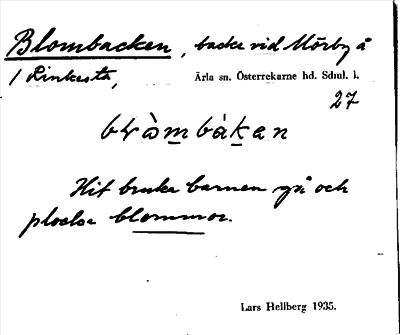 Blombacken, backe vid Mörby å
/ Rinkesta, Ärla sn. Österrekarne hd. Sdml. l.
27
blòm̲bàk̲an
Hit bruka barnen gå och
plocka blommor.
Lars Hellberg 1935.